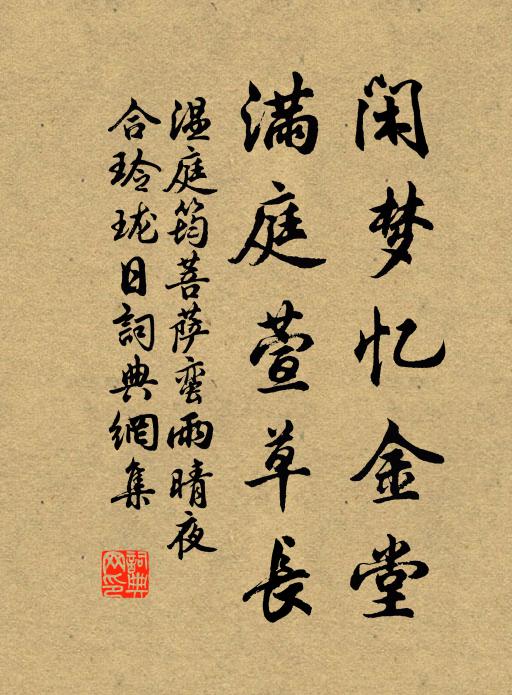 闲梦忆金堂
满庭萱草長
温庭筠菩萨蛮雨晴夜
合玲珑日詞典網集
詞典网印